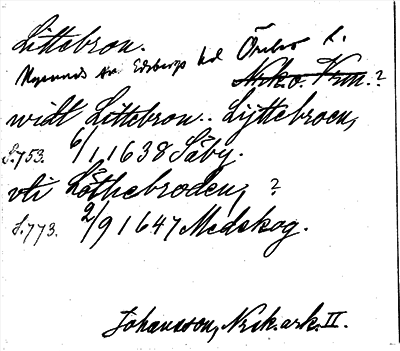 Littebron.
Nysunds sn Edsbergs hd Örebro l.
Nrk o. Vrm. ?
widt Littebron.. Lijttebroen,
S. 753. 6/1, 1638 Säby.
vti Löthebroden, ?
S. 773. 2/9 1647 Medskog.
Johansson, Nrik. ark. II.